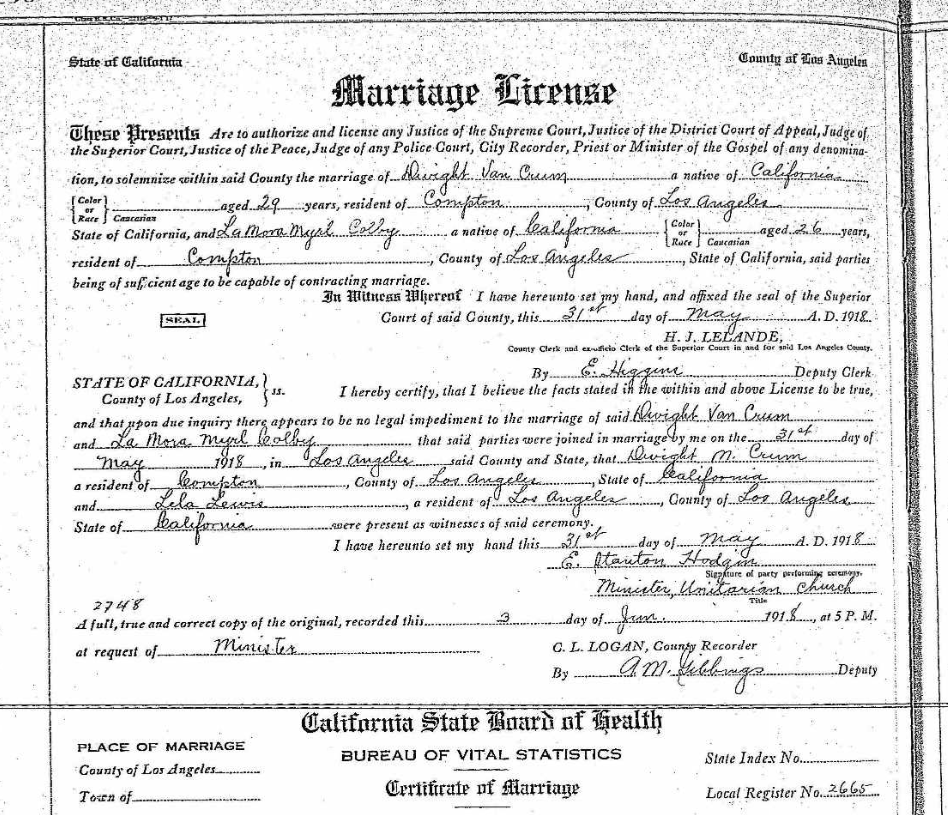 State of California County of Los Angeles
Marriage License
These Presents Are to authorize and license any Justice of the Supreme Court, Justice of the District Court of Appeal, Judge of
the Superior Court, Justice of the Peace, Judge of any Police Court, City Recorder, Priest or Minister of the Gospel of any denomina-
tion, to solemnize within said County the marriage of Dwight Van Crum a native of California
{Color or Race} Caucasian aged 29 years, resident of Compton, County of Los Angeles
State of California, and La Mora Myrl Colby a native of California {Color or Race} Caucasian aged 26 years,
resident of Compton, County of Los Angeles, State of California, said parties
being of sufficient age to be capable of contracting marriage.
In Witness Whereof I have hereunto set my hand, and affixed the seal of the Superior
SEAL Court of said County, this 31st day of May A. D. 1918
H. J. LELANDE,
County Clerk and ex-officio Clerk of the Superior Court in and for said Los Angeles County.
By E. Higgins Deputy Clerk
STATE OF CALIFORNIA, County of Los Angeles, } ss. I hereby certify, that I believe the facts stated in the within and above License to be true,
and that upon due inquiry there appears to be no legal impediment to the marriage of said Dwight Van Crum
and La Mora Myrl Colby that said parties were joined in marriage by me on the 31st day of
May 1918, in Los Angeles said County and State, that Dwight M. Crum
a resident of Compton, County of Los Angeles, State of California
and Lela Lewis, a resident of Los Angeles, County of Los Angeles,
State of California were present as witnesses of said ceremony.
I have hereunto set my hand this 31st day of May A. D. 1918
E. Stanton Hodgin
Signature of party performing ceremony.
Minister, Unitarian Church
Title
2748
A full, true and correct copy of the original, recorded this 3 day of Jun. 1918, at 5 P. M.
at request of Minister C. L. LOGAN, County Recorder
By A. M. Gibbings Deputy
California State Board of Health
PLACE OF MARRIAGE BUREAU OF VITAL STATISTICS State Index No.
County of Los Angeles
Town of Certificate of Marriage Local Register No. 2665